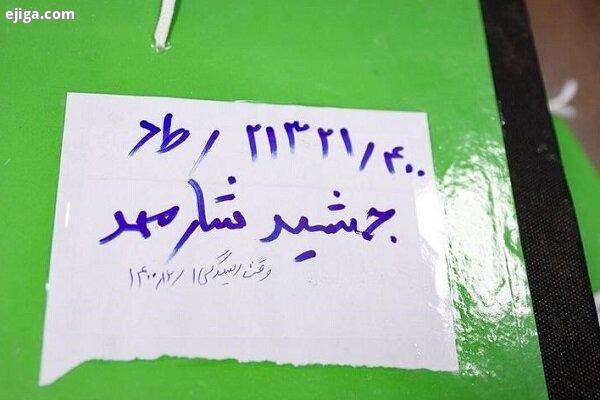 ejiga.com
۲۱۳۲۱/۴۰۰/ط د
جمشید شارمهد
وقت رسیدگی